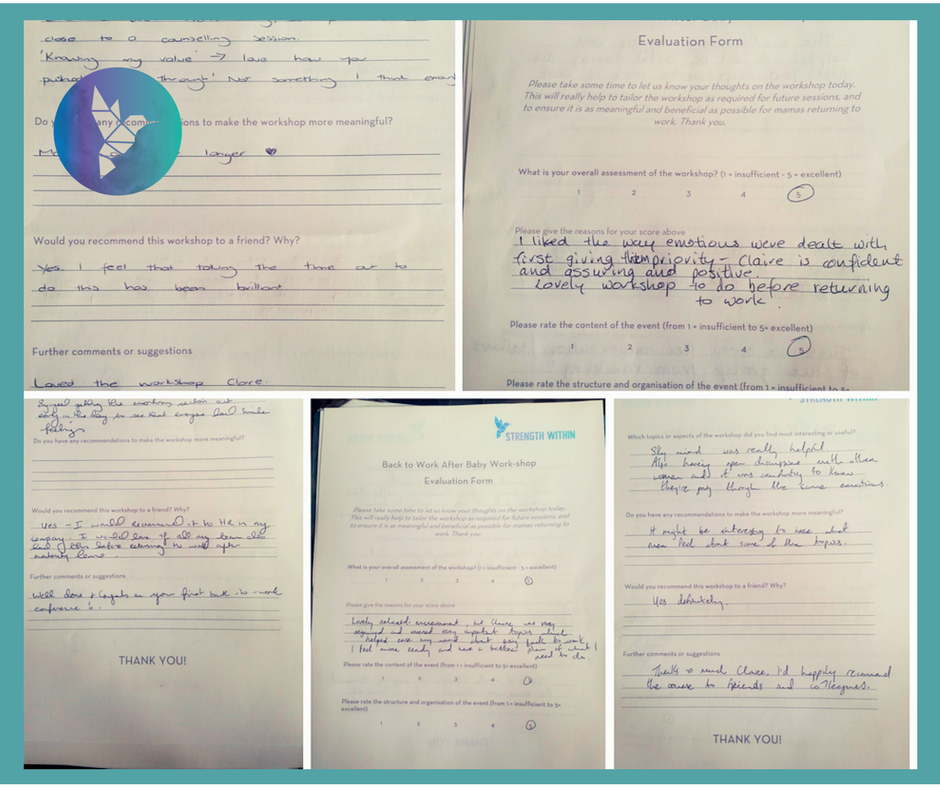 close to a counselling session.
'Knowing my value' → love how you
pushed through! Not something I think enough
Do any recommendations to make the workshop more meaningful?
longer ♥
Would you recommend this workshop to a friend? Why?
Yes. I feel that taking the time out to
do this has been brilliant
Further comments or suggestions
Loved the workshop Claire.
Evaluation Form
Please take some time to let us know your thoughts on the workshop today.
This will really help to tailor the workshop as required for future sessions, and
to ensure it is as meaningful and beneficial as possible for mamas returning to
work. Thank you.
What is your overall assessment of the workshop? (1 = insufficient - 5 = excellent)
1 2 3 4 5
Please give the reasons for your score above
I liked the way emotions were dealt with
first giving them priority - Claire is confident
and assuring and positive.
Lovely workshop to do before returning
to work.
Please rate the content of the event (from 1 = insufficient to 5= excellent)
1 2 3 4 5
Please rate the structure and organisation of the event (from 1 = insufficient to 5=
getting the emotions section out
early in the day, to see that everyone had similar
feelings
Do you have any recommendations to make the workshop more meaningful?
Would you recommend this workshop to a friend? Why?
Yes - I would recommend it to HR in my
company. I would love if all my team also
had this before returning to work after
maternity leave.
Further comments or suggestions
Well done & Congrats on your first back-to-work
conference!
THANK YOU!
STRENGTH WITHIN
Back to Work After Baby Work-shop
Evaluation Form
Please take some time to let us know your thoughts on the workshop today.
This will really help to tailor the workshop as required for future sessions, and
to ensure it is as meaningful and beneficial as possible for mamas returning to
work. Thank you.
What is your overall assessment of the workshop? (1 = insufficient - 5 = excellent)
1 2 3 4 5
Please give the reasons for your score above
Lovely relaxed environment, but Claire was very
organised and covered very important topics which
helped ease my mind about going back to work.
I feel more ready and have a better plan of what I
need to do.
Please rate the content of the event (from 1 = insufficient to 5= excellent)
1 2 3 4 5
Please rate the structure and organisation of the event (from 1 = insufficient to 5=
excellent)
1 2 3 4 5
STRENGTH WITHIN
Which topics or aspects of the workshop did you find most interesting or useful?
Sky mind was really helpful
Also having open discussion with other
women and it was comforting to know
they're going through the same emotions.
Do you have any recommendations to make the workshop more meaningful?
It might be interesting to hear what
men feel about some of these topics.
Would you recommend this workshop to a friend? Why?
Yes definitely.
Further comments or suggestions
Thanks so much Claire, I'd happily recommend
the course to friends and colleagues.
THANK YOU!